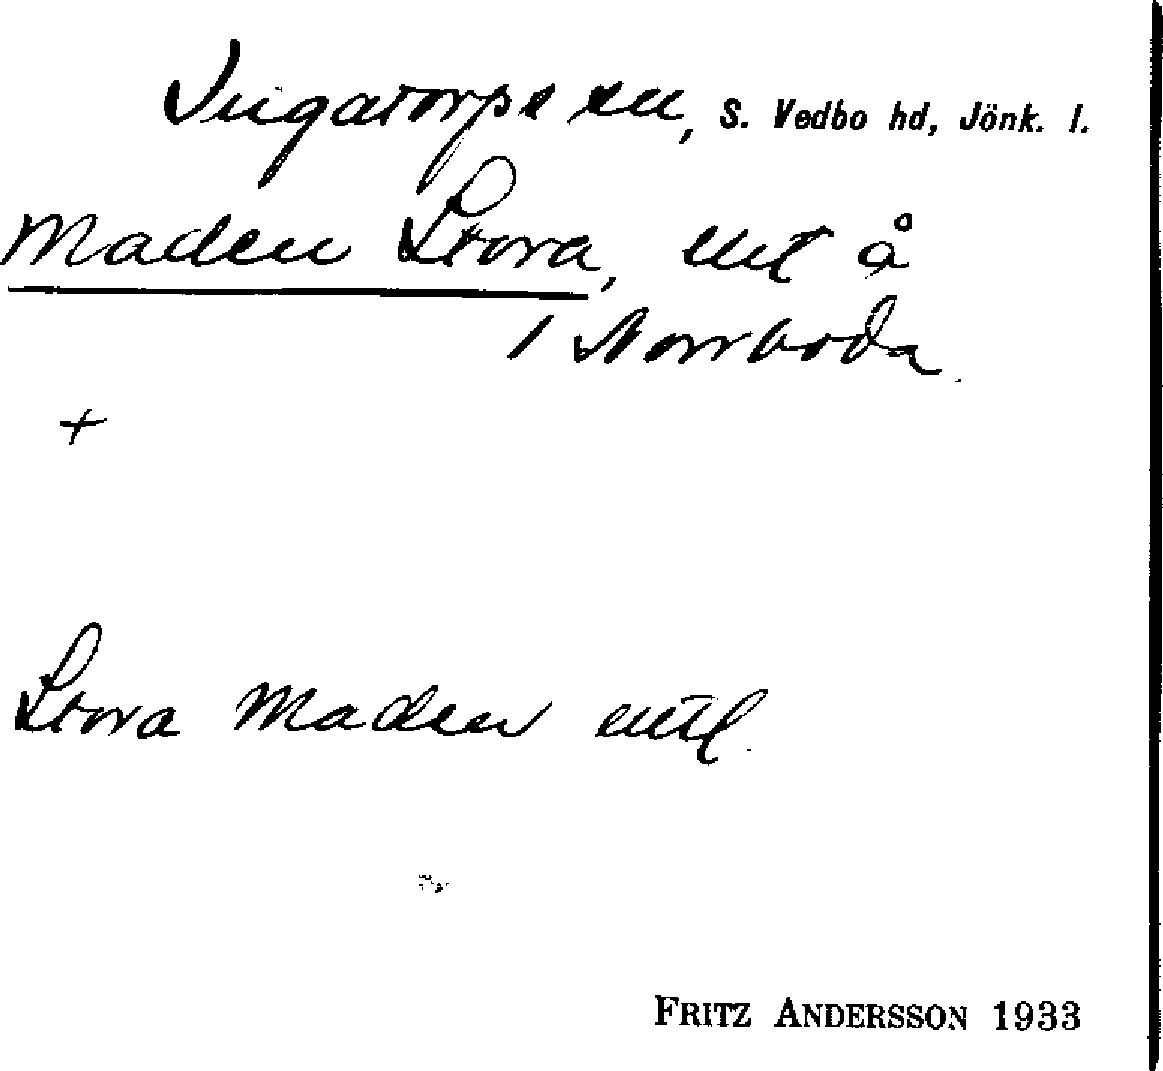 Ingatorps sn, S. Vedbo hd, Jönk. l.
Maden Stora, å
/ Norrboda.
+
Stora Maden
FRITZ ANDERSSON 1933